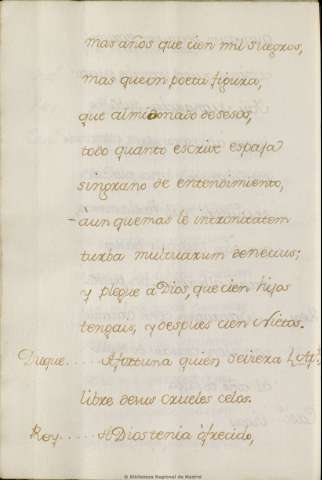 mas años que cien mil suegros,
mas que un poeta figura,
que almidonado de sesos,
todo quanto escrive es paja
sin grano de entendimiento,
aunque mas le intronitatem
turba multuarum de necius;
y plegue a Dios, que cien hijos
tengais, y despues cien Nietos.
Duque..... A fortuna quien se viera
libre de sus crueles celos.
Rey..... A Dios tenia ofrecido,
© Biblioteca Nacional de Madrid